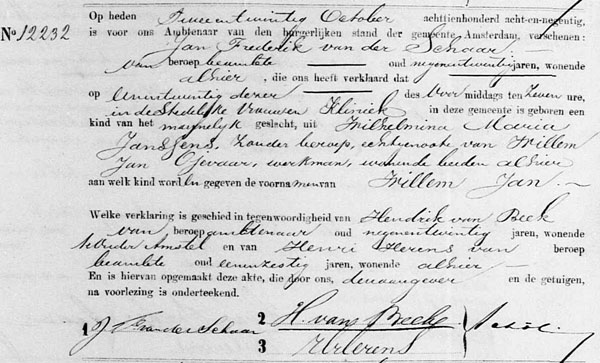 Op heden Tweeentwintig October achttienhonderd acht-en-negentig,
No 12232
is voor ons Ambtenaar van den burgerlijken stand der gemeente Amsterdam, verschenen:
Jan Frederik van der Schaar. —
van beroep beambte oud negenentwintig jaren, wonende
alhier, die ons heeft verklaard dat
op eenentwintig dezer des Voor middags ten Zeven ure,
in de Stedelijke Vrouwen Kliniek in deze gemeente is geboren een
kind van het mannelijk geslacht, uit Wilhelmina Maria
Janssens, zonder beroep, echtgenoote van Willem
Jan Ojevaar, werkman, wonende beiden alhier
aan welk kind worden gegeven de voornamen van Willem Jan. —
Welke verklaring is geschied in tegenwoordigheid van Hendrik van Beek
van beroep ambtenaar oud negenentwintig jaren, wonende
te Ouder Amstel en van Henri Herens van beroep
beambte oud eenenzestig jaren, wonende alhier —
En is hiervan opgemaakt deze akte, die door ons, den aangever en de getuigen,
na voorlezing is onderteekend.
1 J F van der Schaar 2 H. van Beek
3 H Herens